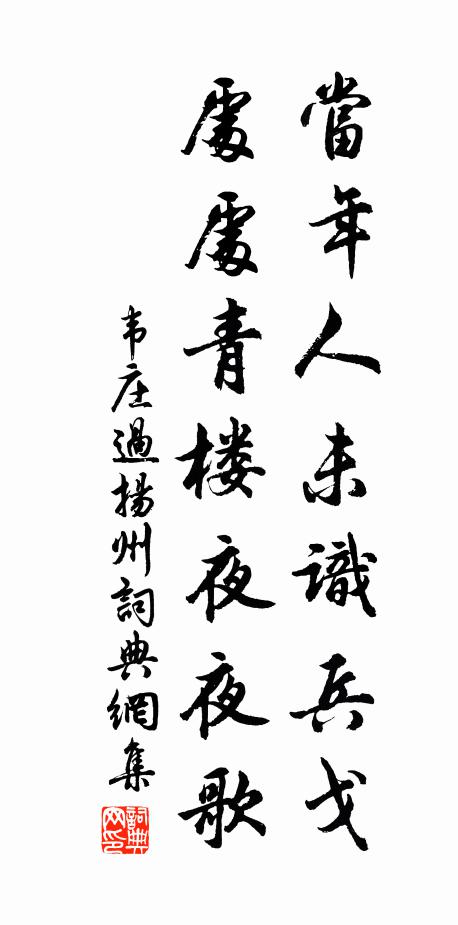 當年人未識兵戈
處處青楼夜夜歌
韦庄過揚州詞典網集
詞典网印